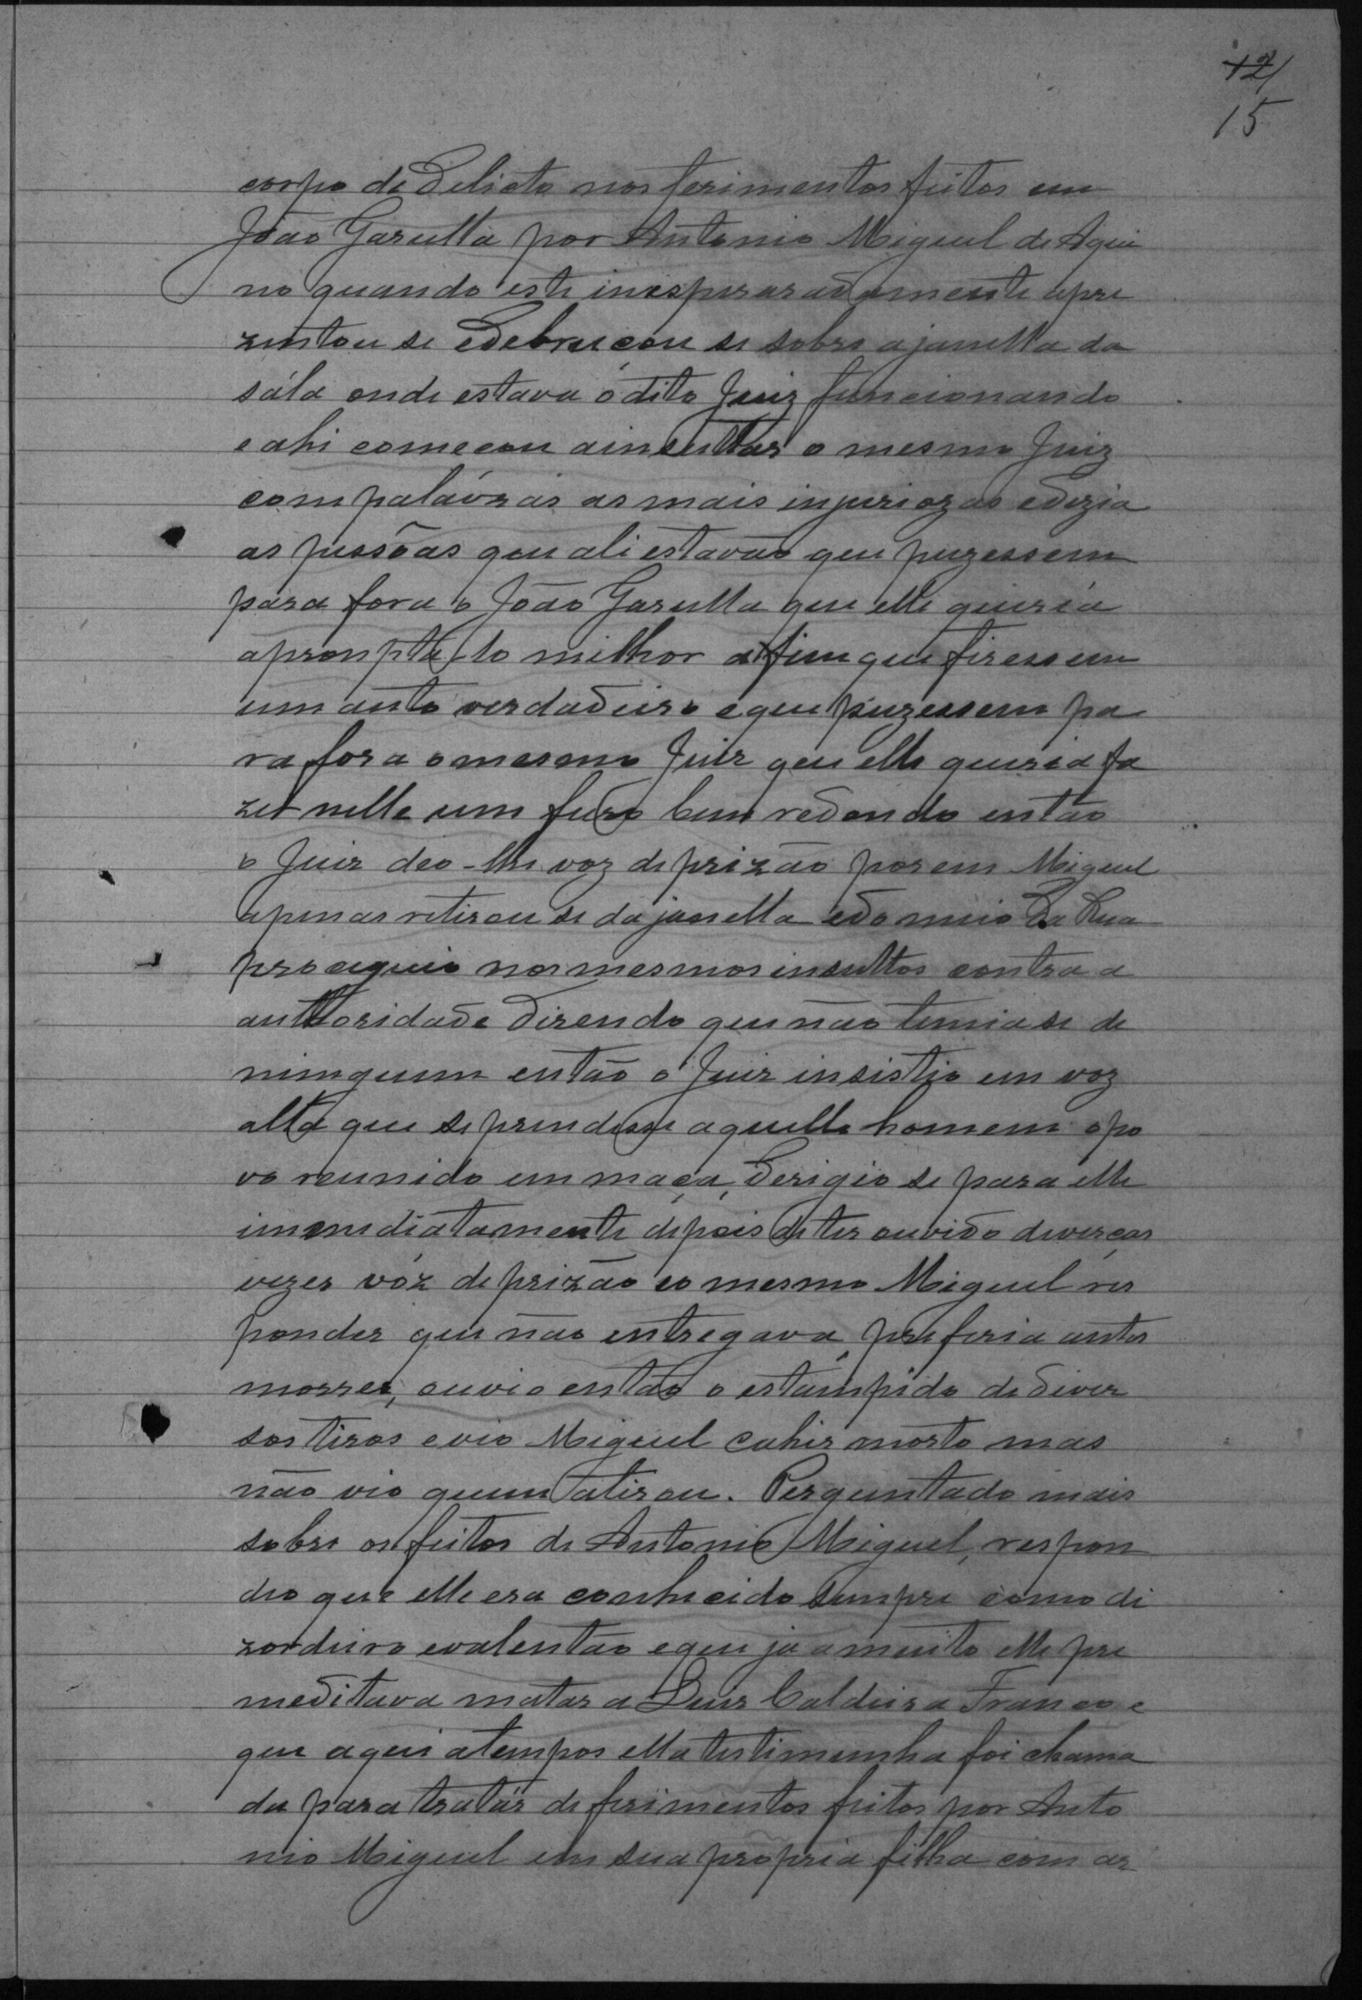 12
15
corpo de Delicto nos ferimentos feitos em
João Garulla por Antonio Miguel de Aqui
no quando este inesperaradamente apre
zentou se e debruçou se sobre a janella da
sála onde estava o dito Juiz funcionando
e ahi começou a insultar o mesmo Juiz
com palávras as mais injuriozas e dezia
as pessôas que ali estavão que puzessem
para fora o João Garulla que elle queria
apromptal-lo milhor afim que fizessem
um auto verdadeiro e que puzessem pa
ra fora o mesmo Juiz que elle queria fa
zer nelle um furo bem redondo então
o Juiz deo-lhe voz de prizão porem Miguel
apenas retirou se da janella e do meio da Rua
proceguio nos mesmos insultos contra a
authoridade dizendo que não temia se de
ninguem então o Juiz insistio em voz
alta que se prendesse aquelle homem o po
vo reunido em maça, derigio se para elle
immediatamente depois de ter ouvido diverças
vezes vóz de prizão e o mesmo Miguel res
ponder que não entregava, preferia antes
morrer, ouvio então o estampido de diver
sos tiros e vio Miguel cahir morto mas
não vio quem atirou. Perguntado mais
sobre os feitos de Antonio Miguel, respon
deo que elle era conhecido sempre como di
zordeiro e valentão e que ja a muito elle pre
meditava matar a Luiz Caldeira Franco e
que aqui a tempos ella testimunha foi chama
da para tratár de ferimentos feitos por Anto
nio Miguel em sua propria filha com ar